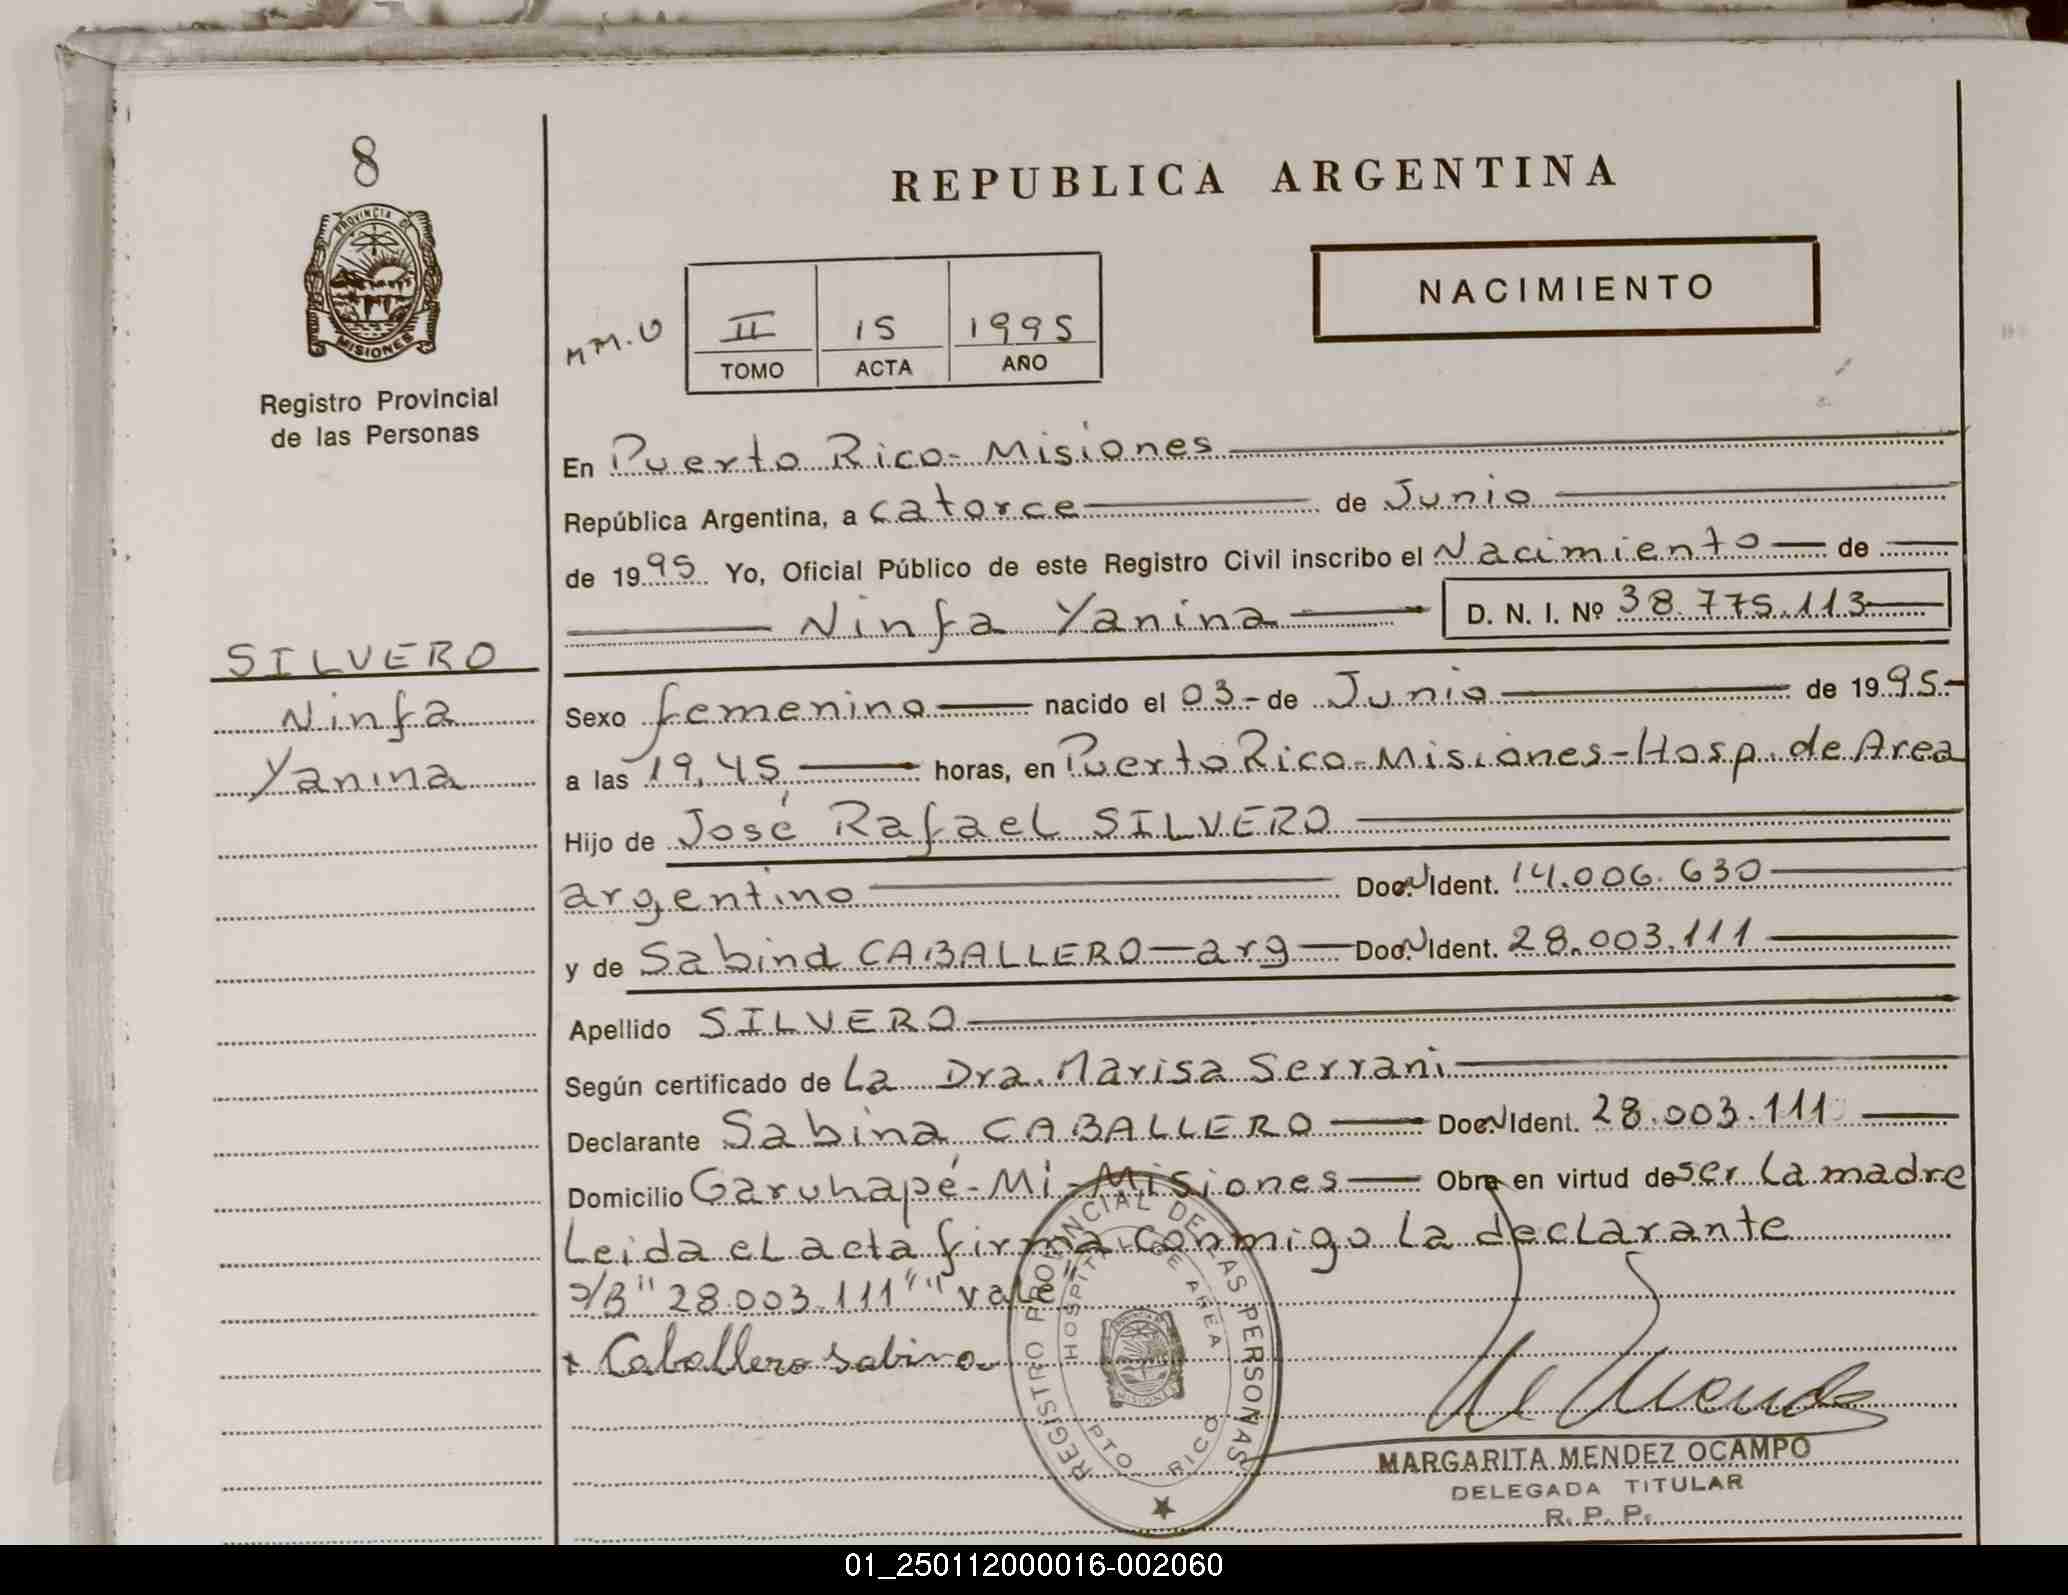 8
PROVINCIA DE
MISIONES
Registro Provincial
de las Personas
REPUBLICA ARGENTINA
NACIMIENTO
M M. U
II 15 1995
TOMO ACTA AÑO
En Puerto Rico - Misiones
República Argentina, a catorce de Junio
de 1995 Yo, Oficial Público de este Registro Civil inscribo el Nacimiento de
Ninfa Yanina D. N. I. Nº 38.775.113
SILVERO
Ninfa
Yanina
Sexo femenino nacido el 03 - de Junio de 1995 -
a las 19,45 horas, en Puerto Rico - Misiones - Hosp. de Area
Hijo de José Rafael SILVERO
argentino Doc. Ident. 14.006.630
y de Sabina CABALLERO - arg - Doc. Ident. 28.003.111
Apellido SILVERO
Según certificado de La Dra. Marisa Serrani
Declarante Sabina CABALLERO Doc. Ident. 28.003.111
Domicilio Garuhapé - Mi - Misiones Obra en virtud de ser la madre
Leida el acta firma conmigo la declarante
s/B "28.003.111" "vale"
x Caballero sabina
REGISTRO PROVINCIAL DE LAS PERSONAS
HOSPITAL DE AREA
PTO RICO
MISIONES
MARGARITA MENDEZ OCAMPO
DELEGADA TITULAR
R. P. P.
01_250112000016-002060